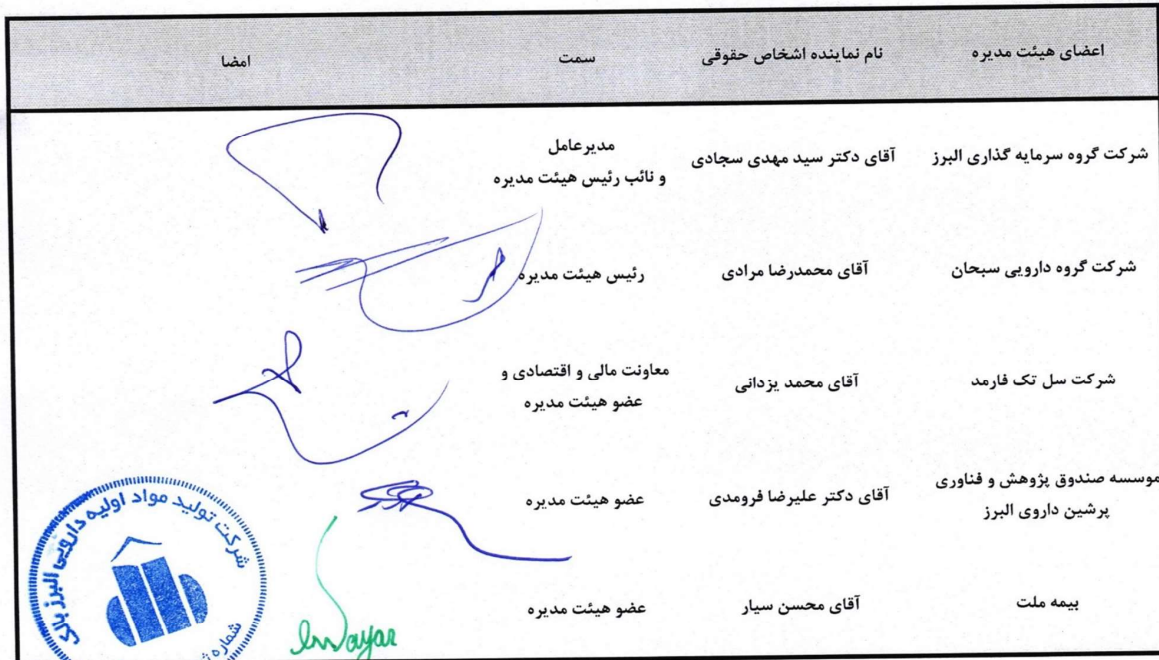 اعضای هیئت مدیره نام نماینده اشخاص حقوقی سمت امضا
شرکت گروه سرمایه گذاری البرز آقای دکتر سید مهدی سجادی مدیرعامل
و نائب رئیس هیئت مدیره
شرکت گروه دارویی سبحان آقای محمدرضا مرادی رئیس هیئت مدیره
شرکت سل تک فارمد آقای محمد یزدانی معاونت مالی و اقتصادی و
عضو هیئت مدیره
موسسه صندوق پژوهش و فناوری
پرشین داروی البرز آقای دکتر علیرضا فرومدی عضو هیئت مدیره
بیمه ملت آقای محسن سیار عضو هیئت مدیره
شرکت تولید مواد اولیه دارویی البرز بالک
شماره